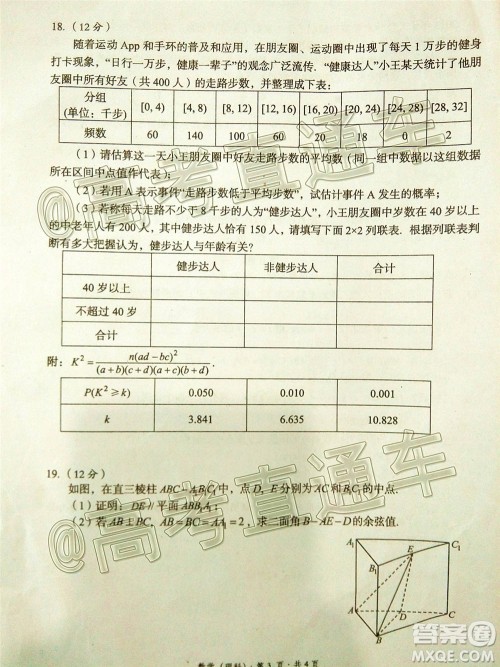 18.（12 分）
随着运动 App 和手环的普及和应用，在朋友圈、运动圈中出现了每天 1 万步的健身
打卡现象，“日行一万步，健康一辈子”的观念广泛流传. “健康达人”小王某天统计了他朋
友圈中所有好友（共 400 人）的走路步数，并整理成下表：
分组（单位：千步） [0, 4) [4, 8) [8, 12) [12, 16) [16, 20) [20, 24) [24, 28) [28, 32]
频数 60 140 100 60 20 18 0 2
（1）请估算这一天小王朋友圈中好友走路步数的平均数（同一组中数据以这组数据所
在区间中点值作代表）；
（2）若用 A 表示事件“走路步数低于平均步数”，试估计事件 A 发生的概率；
（3）若称每天走路不少于 8 千步的人为“健步达人”，小王朋友圈中岁数在 40 岁以上
的中老年人有 200 人，其中健步达人恰有 150 人，请填写下面 2×2 列联表. 根据列联表判
断有多大把握认为，健步达人与年龄有关？
健步达人 非健步达人 合计
40 岁以上
不超过 40 岁
合计
附：K² = n(ad − bc)² / (a + b)(c + d)(a + c)(b + d) .
P(K² ≥ k) 0.050 0.010 0.001
k 3.841 6.635 10.828
19.（12 分）
如图，在直三棱柱 ABC − A₁B₁C₁ 中，点 D, E 分别为 AC 和 B₁C₁ 的中点.
（1）证明：DE // 平面 ABB₁A₁；
（2）若 AB ⊥ BC，AB = BC = AA₁ = 2，求二面角 B − AE − D 的余弦值.
A₁ C₁
E
B₁
A D C
B
数学（理科）· 第 3 页 · 共 4 页
@高考直通车
@高考直通车
答案圈
MXQE.COM